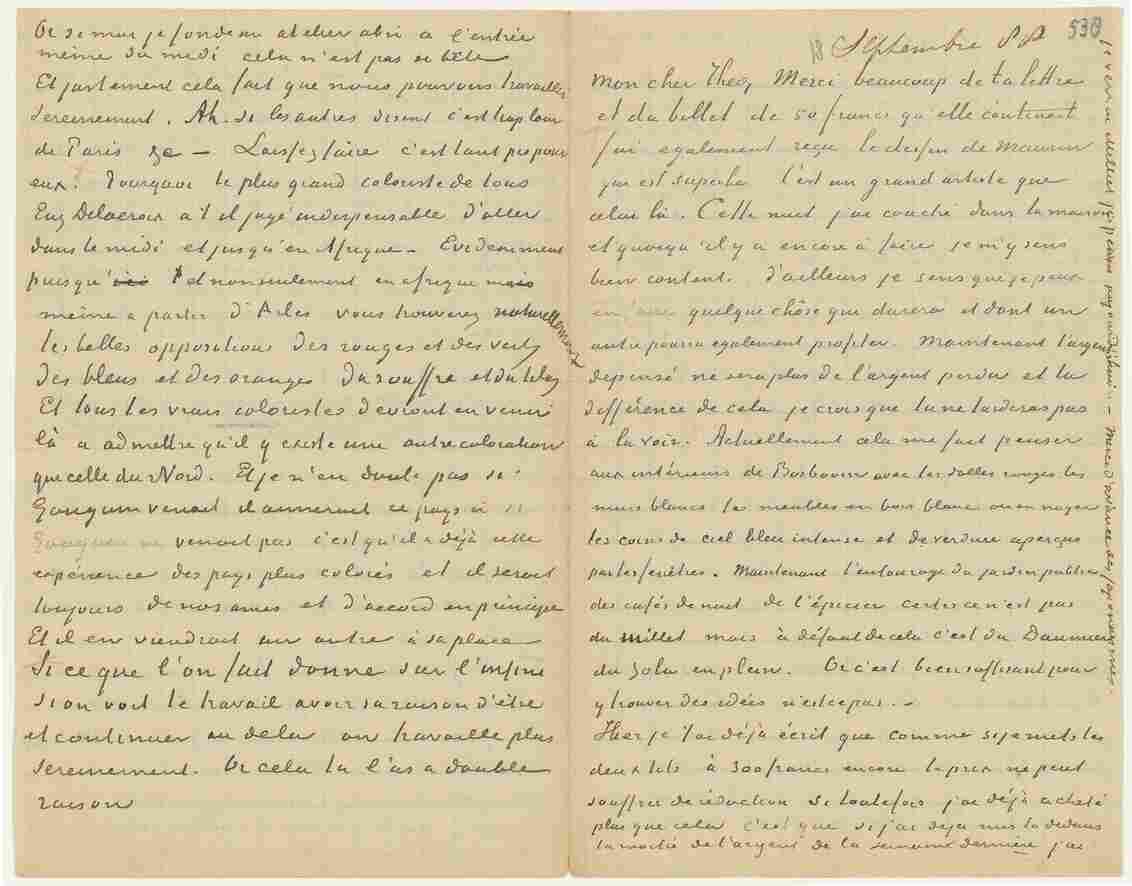 Or si moi je fonde un atelier abri à l'entrée
même du midi cela n'est pas si bête
Et justement cela fait que nous pouvons travailler
sereinement. Ah. si les autres disent c'est trop loin
de Paris &c – Laissez faire c'est tant pis pour
eux. Pourquoi le plus grand coloriste de tous
Eug Delacroix a t'il jugé indispensable d'aller
dans le midi et jusqu'en Afrique – Evidemment
puisque et non seulement en afrique mais
même a partir d'Arles vous trouverez naturellement
les belles oppositions des rouges et des verts
des bleus et des oranges du souffre et du lilas
Et tous les vrais coloristes devront en venir
là a admettre qu'il y existe une autre coloration
que celle du Nord. Et je n'en doute pas si
Gauguin venait il aimerait ce pays ci si
Gauguin ne venait pas c'est qu'il a déjà cette
expérience des pays plus colorés et il serait
toujours de nos amis et d'accord en principe
Et il en viendrait un autre à sa place
Si ce que l'on fait donne sur l'infini
si on voit le travail avoir sa raison d'être
et continuer au dela on travaille plus
sereinement. Or cela tu l'as a double
raison
18 Septembre 88 538
Mon cher Theo, Merci beaucoup de ta lettre
et du billet de 50 francs qu'elle contenait
j'ai également reçu le dessin de Maurin
qui est superbe l'est un grand artiste que
celui là. Cette nuit j'ai couché dans la maison
et quoiqu'il y a encore à faire je m'y sens
bien content. D'ailleurs je sens que je peux
en faire quelque chôse qui durera et dont un
autre pourra egalement profiter. Maintenant l'argent
depensé ne sera plus de l'argent perdu et la
différence de cela je crois que tu ne tarderas pas
à la voir. Actuellement cela me fait penser
aux intérieurs de Bosboom avec les dalles rouges les
murs blancs les meubles en bois blanc ou en noyer
les coins de ciel bleu intense et de verdure aperçus
par les fenêtres. Maintenant l'entourage du jardin public
des cafés de nuit de l'épicier certes ce n'est pas
du Millet mais à défaut de cela c'est du Daumier
du Zola en plein. Or c'est bien suffisant pour
y trouver des idées n'est ce pas. –
Hier je t'ai déjà écrit que comme si je mets les
deux lits à 300 francs encore le prix ne peut
souffrir de réduction si toutefois j'ai déjà acheté
plus que cela c'est que si j'ai déjà mis là dedans
la moitié de l'argent de la semaine dernière j'ai